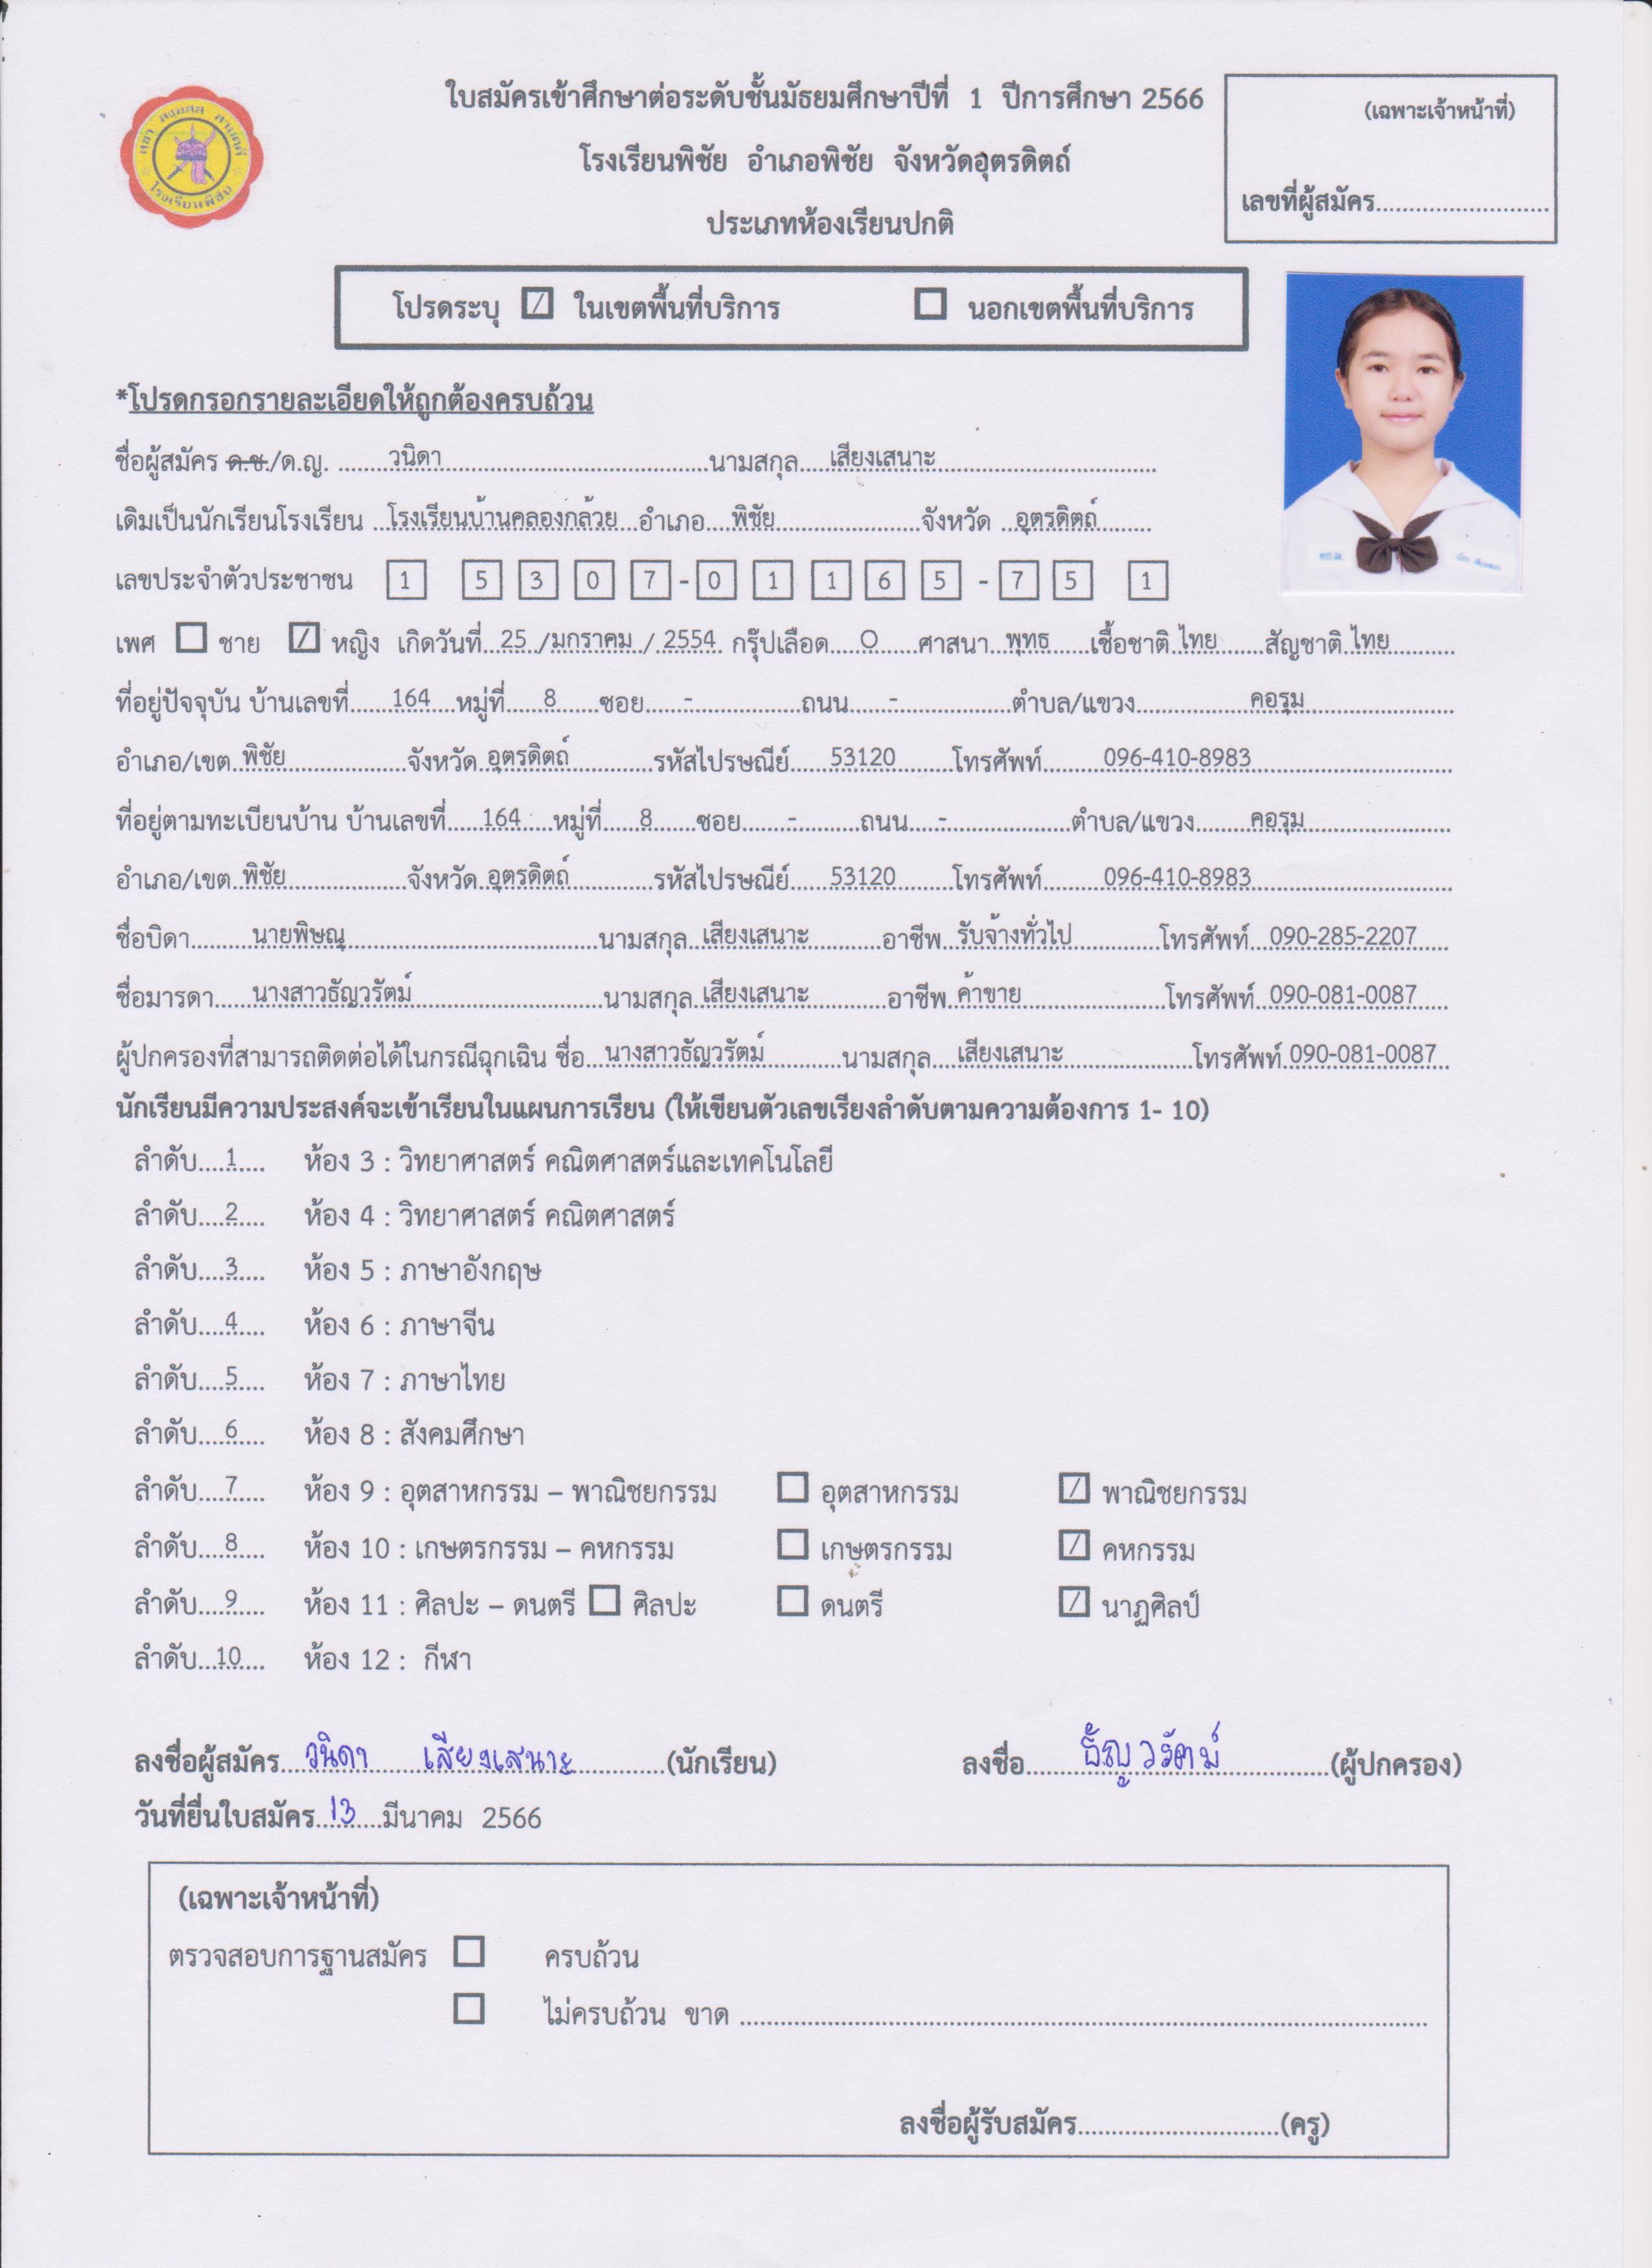 สุขา สงฺฆสฺส สามคฺคี
โรงเรียนพิชัย
ใบสมัครเข้าศึกษาต่อระดับชั้นมัธยมศึกษาปีที่ 1 ปีการศึกษา 2566
(เฉพาะเจ้าหน้าที่)
โรงเรียนพิชัย อำเภอพิชัย จังหวัดอุตรดิตถ์
เลขที่ผู้สมัคร..........................
ประเภทห้องเรียนปกติ
โปรดระบุ ☑ ในเขตพื้นที่บริการ ☐ นอกเขตพื้นที่บริการ
*โปรดกรอกรายละเอียดให้ถูกต้องครบถ้วน
ชื่อผู้สมัคร ด.ช./ด.ญ. ........วนิดา........นามสกุล.....เสียงเสนาะ........
เดิมเป็นนักเรียนโรงเรียน ..โรงเรียนบ้านคลองกล้วย...อำเภอ....พิชัย........จังหวัด ..อุตรดิตถ์........
เลขประจำตัวประชาชน 1 5 3 0 7 - 0 1 1 6 5 - 7 5 1
เพศ ☐ ชาย ☑ หญิง เกิดวันที่...25 /มกราคม / 2554 กรุ๊ปเลือด.....O......ศาสนา..พุทธ......เชื้อชาติ.ไทย.......สัญชาติ.ไทย..........
ที่อยู่ปัจจุบัน บ้านเลขที่.......164....หมู่ที่......8......ซอย......-........ถนน......-........ตำบล/แขวง........คอรุม........
อำเภอ/เขต..พิชัย........จังหวัด..อุตรดิตถ์........รหัสไปรษณีย์......53120........โทรศัพท์........096-410-8983........
ที่อยู่ตามทะเบียนบ้าน บ้านเลขที่......164.....หมู่ที่......8.......ซอย.......-........ถนน.....-........ตำบล/แขวง........คอรุม........
อำเภอ/เขต..พิชัย........จังหวัด..อุตรดิตถ์........รหัสไปรษณีย์......53120........โทรศัพท์........096-410-8983........
ชื่อบิดา........นายพิษณุ........นามสกุล..เสียงเสนาะ........อาชีพ..รับจ้างทั่วไป........โทรศัพท์...090-285-2207.....
ชื่อมารดา......นางสาวธัญวรัตม์........นามสกุล..เสียงเสนาะ........อาชีพ..ค้าขาย........โทรศัพท์...090-081-0087.....
ผู้ปกครองที่สามารถติดต่อได้ในกรณีฉุกเฉิน ชื่อ...นางสาวธัญวรัตม์........นามสกุล.....เสียงเสนาะ........โทรศัพท์.090-081-0087..
นักเรียนมีความประสงค์จะเข้าเรียนในแผนการเรียน (ให้เขียนตัวเลขเรียงลำดับตามความต้องการ 1- 10)
ลำดับ....1..... ห้อง 3 : วิทยาศาสตร์ คณิตศาสตร์และเทคโนโลยี
ลำดับ....2..... ห้อง 4 : วิทยาศาสตร์ คณิตศาสตร์
ลำดับ....3..... ห้อง 5 : ภาษาอังกฤษ
ลำดับ....4..... ห้อง 6 : ภาษาจีน
ลำดับ....5..... ห้อง 7 : ภาษาไทย
ลำดับ....6..... ห้อง 8 : สังคมศึกษา
ลำดับ....7..... ห้อง 9 : อุตสาหกรรม – พาณิชยกรรม ☐ อุตสาหกรรม ☑ พาณิชยกรรม
ลำดับ....8..... ห้อง 10 : เกษตรกรรม – คหกรรม ☐ เกษตรกรรม ☑ คหกรรม
ลำดับ....9..... ห้อง 11 : ศิลปะ – ดนตรี ☐ ศิลปะ ☐ ดนตรี ☑ นาฏศิลป์
ลำดับ...10.... ห้อง 12 : กีฬา
ลงชื่อผู้สมัคร....วนิดา เสียงเสนาะ........(นักเรียน) ลงชื่อ........ธัญวรัตม์........(ผู้ปกครอง)
วันที่ยื่นใบสมัคร..13....มีนาคม 2566
(เฉพาะเจ้าหน้าที่)
ตรวจสอบการฐานสมัคร ☐ ครบถ้วน
☐ ไม่ครบถ้วน ขาด ........................................................................
ลงชื่อผู้รับสมัคร..............................(ครู)